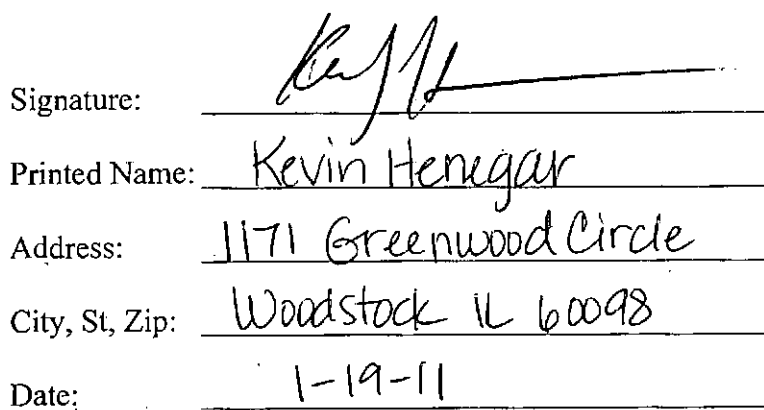 Signature:
Printed Name: Kevin Henegar
Address: 1171 Greenwood Circle
City, St, Zip: Woodstock IL 60098
Date: 1-19-11